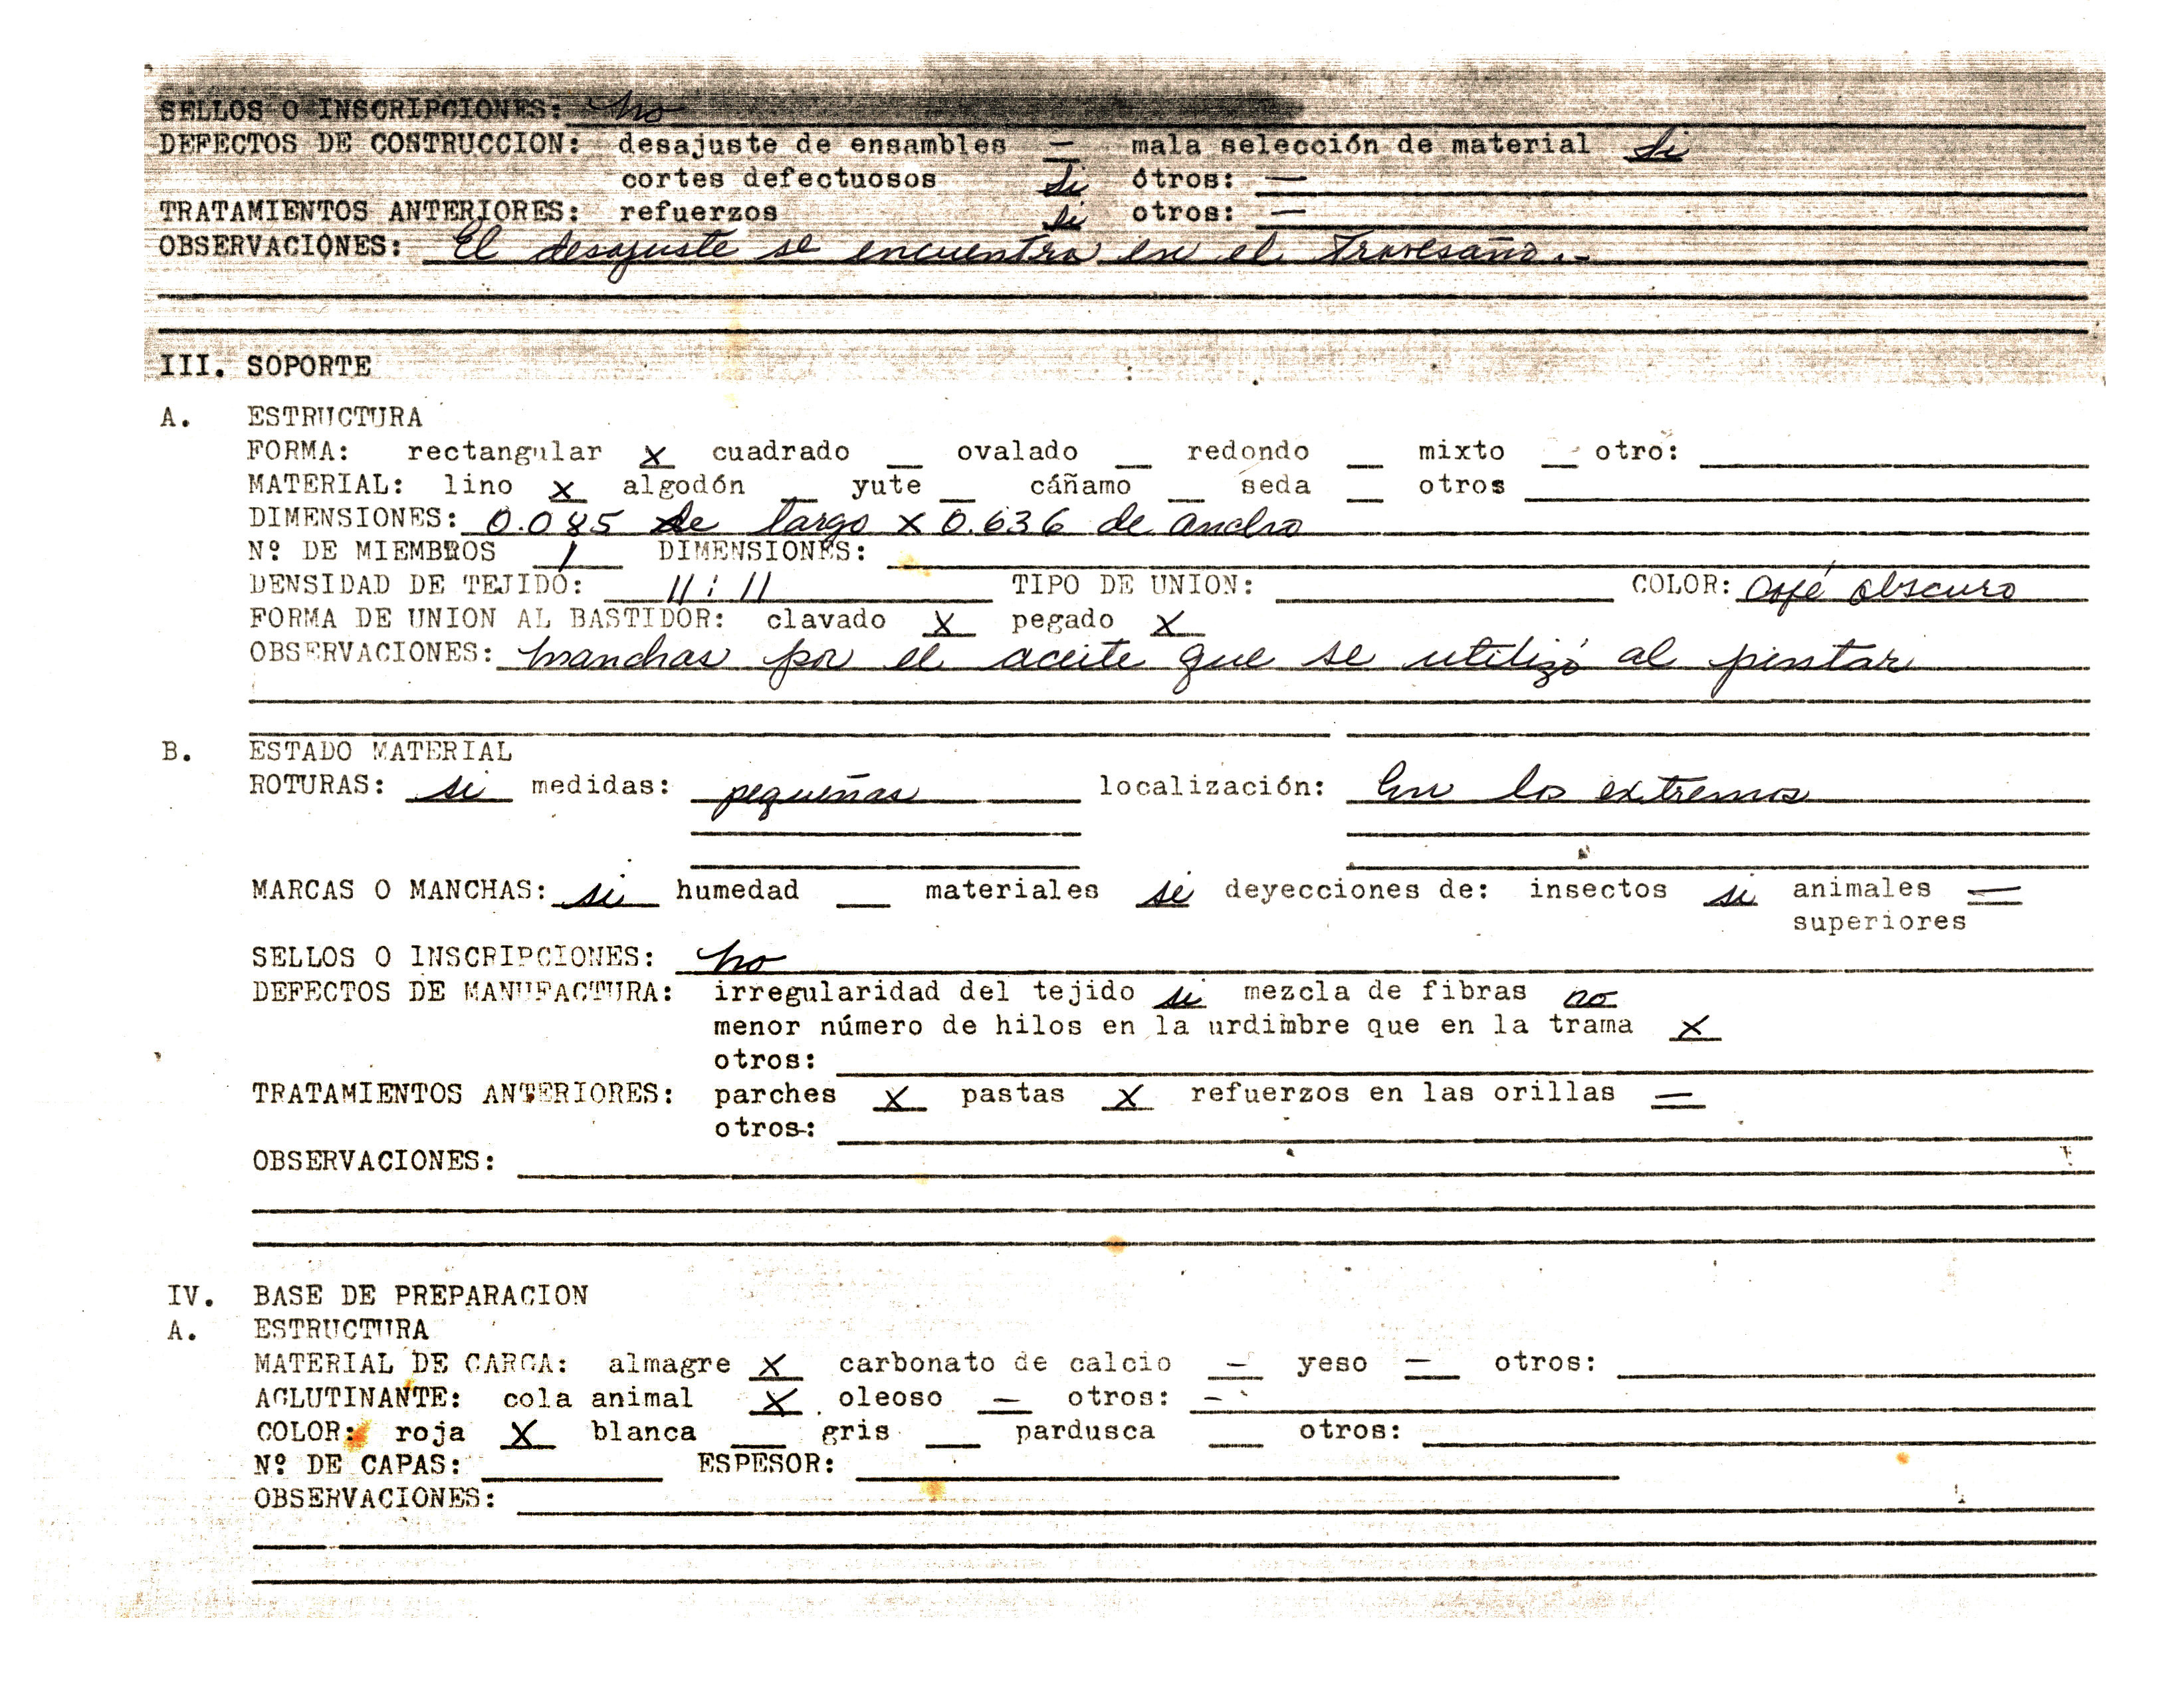 SELLOS O INSCRIPCIONES: no
DEFECTOS DE COSTRUCCION: desajuste de ensambles — mala selección de material si
cortes defectuosos si ótros: —
TRATAMIENTOS ANTERIORES: refuerzos si otros: —
OBSERVACIONES: El desajuste se encuentra en el travesaño.-
III. SOPORTE
A. ESTRUCTURA
FORMA: rectangular X cuadrado __ ovalado __ redondo __ mixto __ otro:
MATERIAL: lino X algodón __ yute __ cáñamo __ seda __ otros
DIMENSIONES: 0.085 de largo x 0.636 de ancho
Nº DE MIEMBROS 1 DIMENSIONES:
DENSIDAD DE TEJIDO: 11:11 TIPO DE UNION: COLOR: café obscuro
FORMA DE UNION AL BASTIDOR: clavado X pegado X
OBSERVACIONES: manchas por el aceite que se utilizó al pintar
B. ESTADO MATERIAL
ROTURAS: si medidas: pequeñas localización: En los extremos
MARCAS O MANCHAS: si humedad __ materiales si deyecciones de: insectos si animales —
superiores
SELLOS O INSCRIPCIONES: no
DEFECTOS DE MANUFACTURA: irregularidad del tejido si mezcla de fibras no
menor número de hilos en la urdimbre que en la trama X
otros:
TRATAMIENTOS ANTERIORES: parches X pastas X refuerzos en las orillas —
otros:
OBSERVACIONES:
IV. BASE DE PREPARACION
A. ESTRUCTURA
MATERIAL DE CARGA: almagre X carbonato de calcio — yeso — otros:
AGLUTINANTE: cola animal X oleoso — otros: —
COLOR: roja X blanca __ gris __ pardusca __ otros:
Nº DE CAPAS: ESPESOR:
OBSERVACIONES: